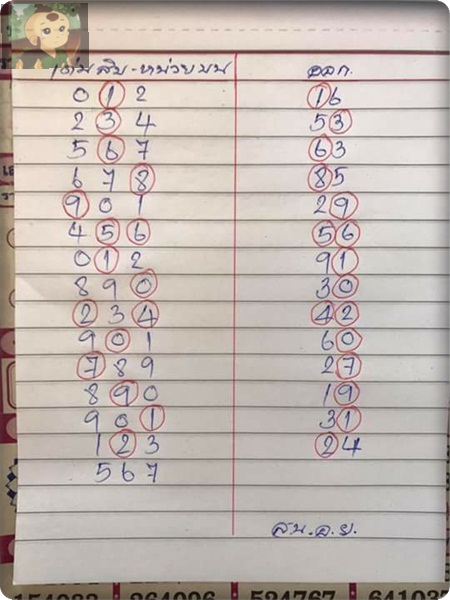 เด่นสิบ-หน่วยบน ออก.
0 1 2 16
2 3 4 53
5 6 7 63
6 7 8 85
9 0 1 29
4 5 6 56
0 1 2 91
8 9 0 30
2 3 4 42
9 0 1 60
7 8 9 27
8 9 0 19
9 0 1 31
1 2 3 24
5 6 7
264096 524767